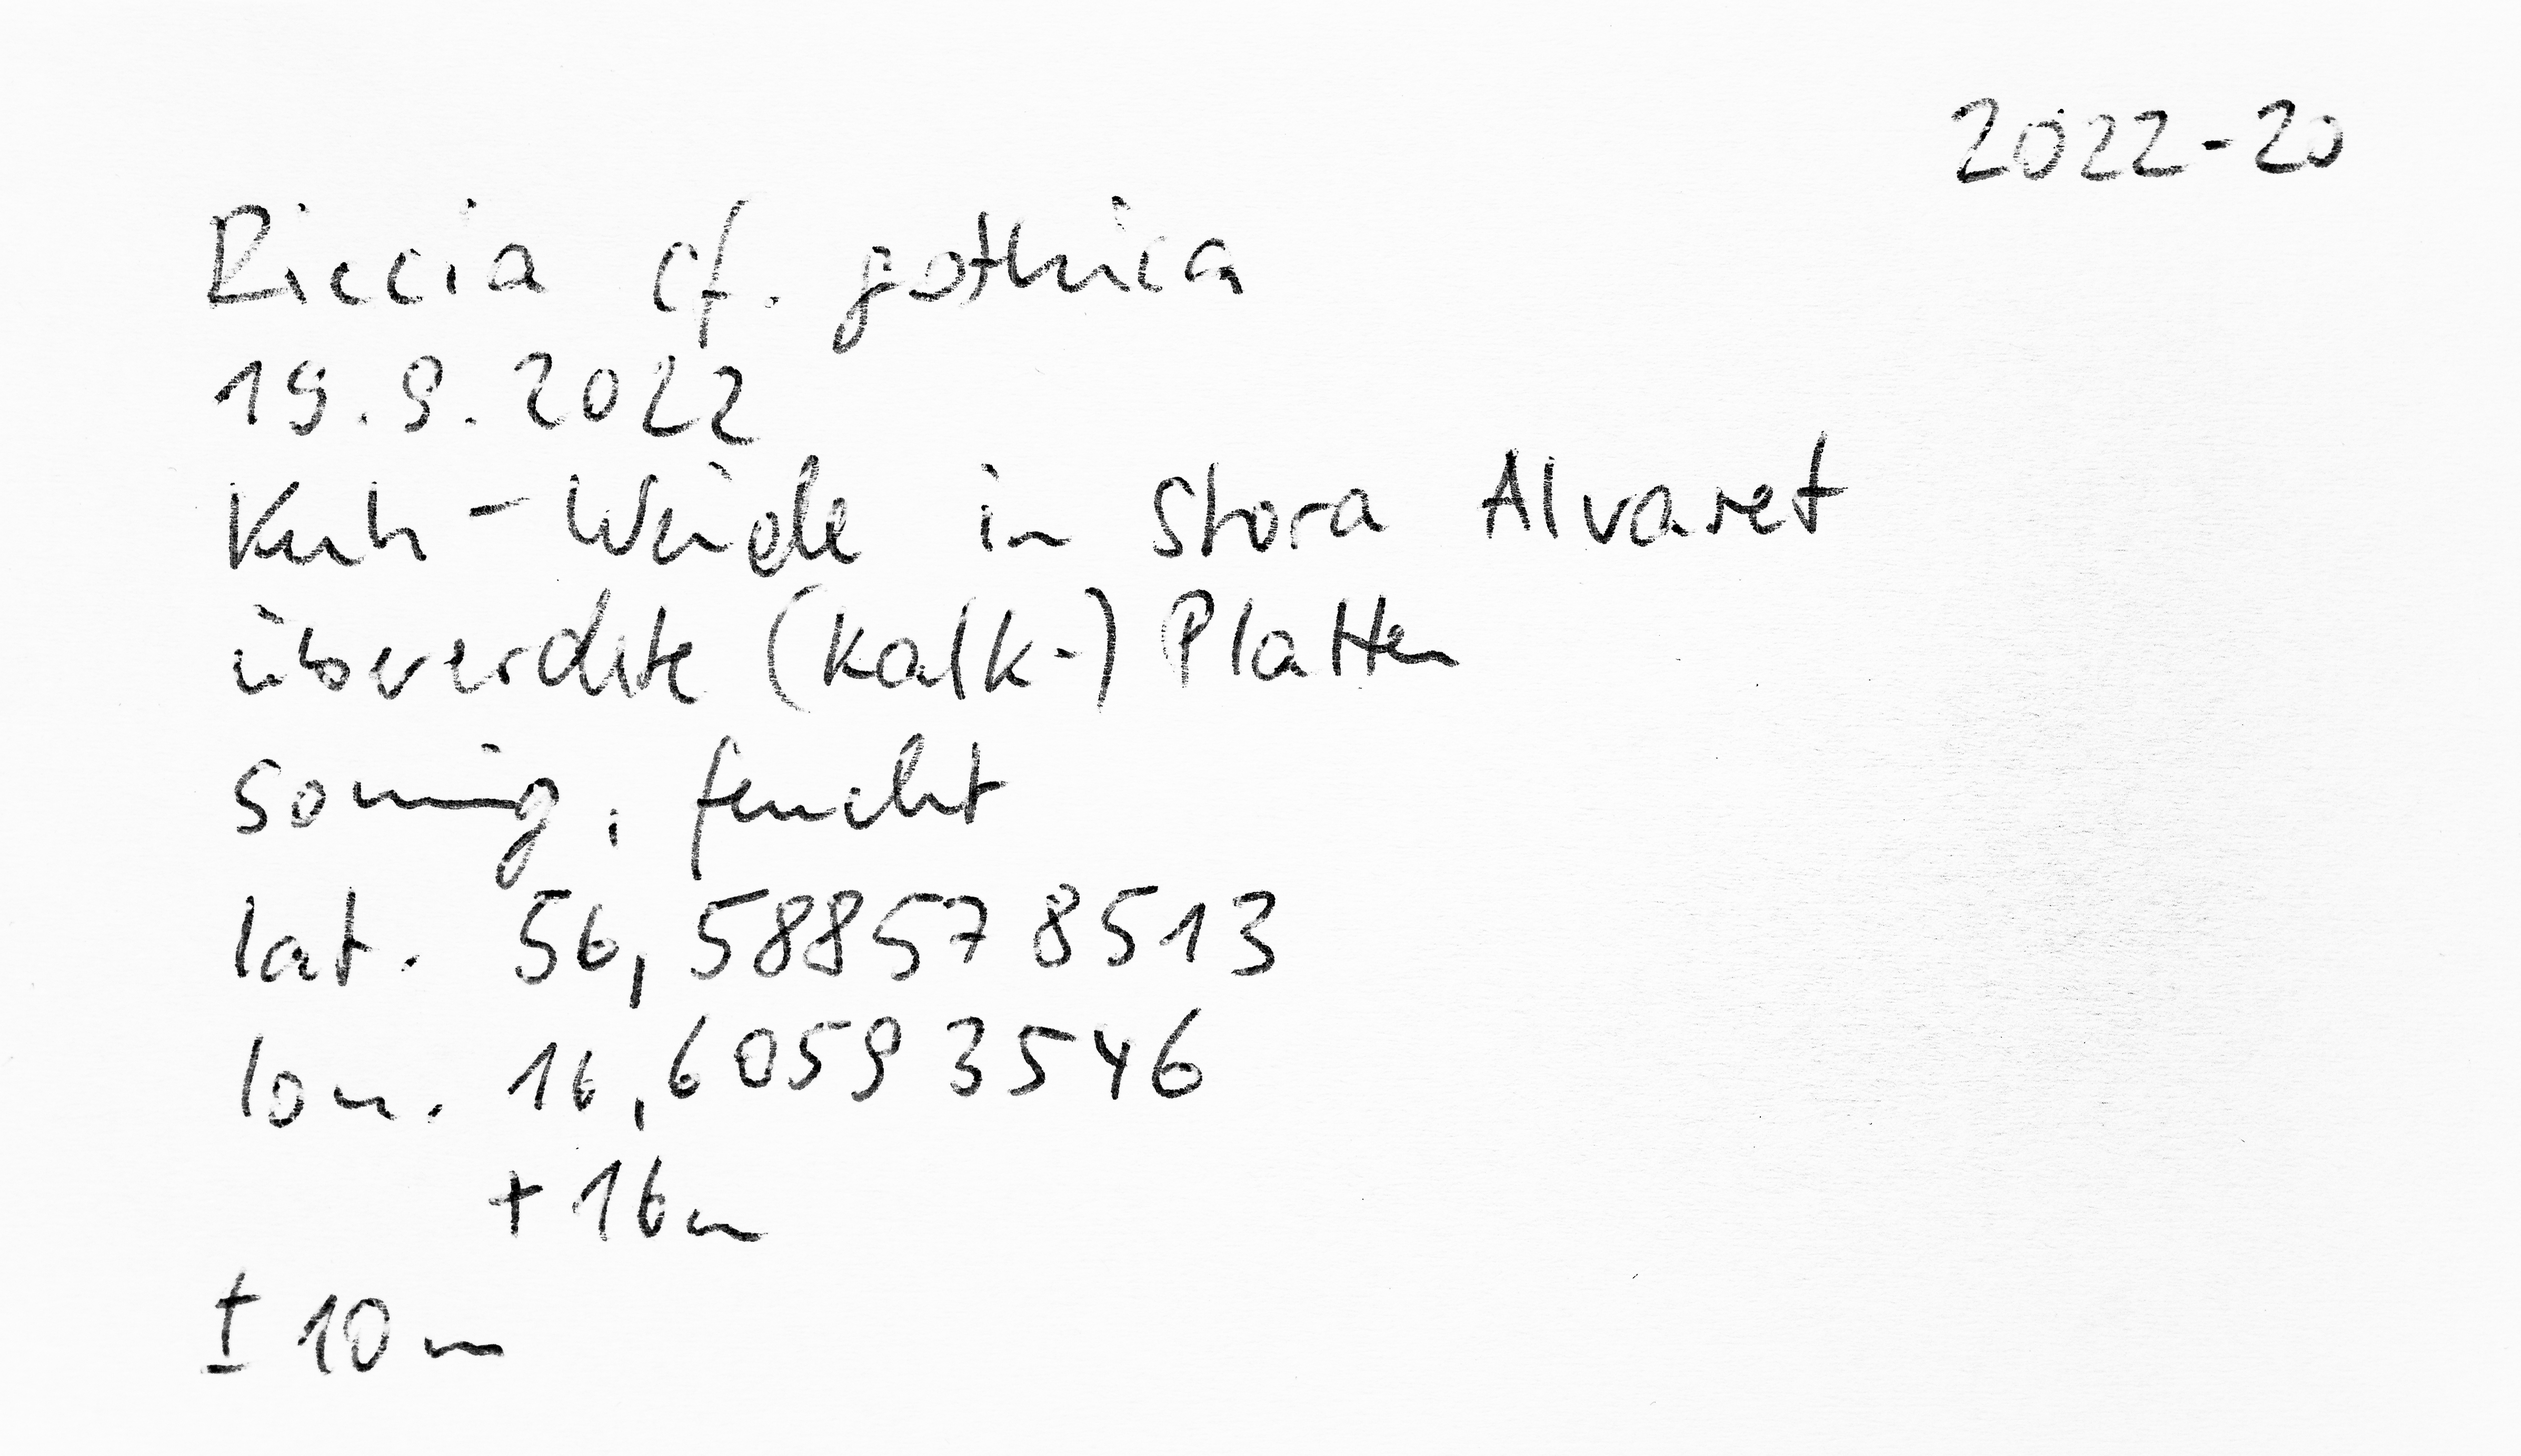 2022-20
Riccia cf. gothica
19.9.2022
Kuh-Weide in Stora Alvaret
übererdete (Kalk-) Platten
sonnig, feucht
lat. 56,588578513
lon. 16,60593546
+16m
± 10m